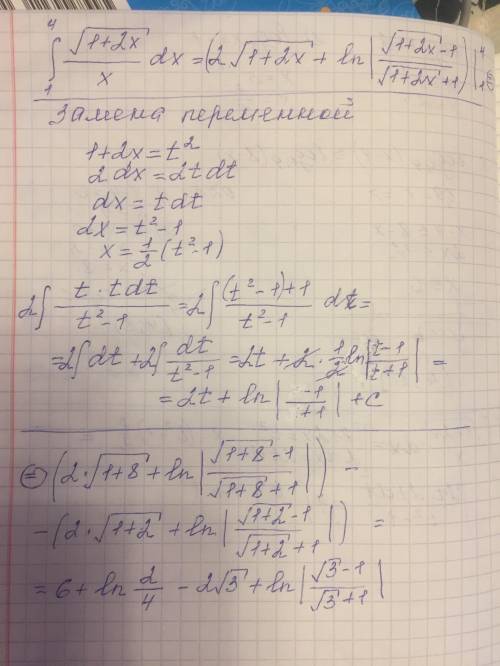 ∫₁⁴ √(1+2x)/x dx = (2√(1+2x) + ln|(√(1+2x) -1)/(√(1+2x) +1)|)|₁⁴ ⊜
Замена переменной
1+2x = t²
2dx = 2tdt
dx = tdt
2x = t²-1
x = 1/2 (t²-1)
2∫ (t·tdt)/(t²-1) = 2∫ ((t²-1)+1)/(t²-1) dt =
= 2∫dt + 2∫ dt/(t²-1) = 2t + 2·1/2 ln|(t-1)/(t+1)| =
= 2t + ln|(-1)/(+1)| + c
⊜ (2·√(1+8) + ln|(√(1+8) -1)/(√(1+8) +1)|) -
- (2·√(1+2) + ln|(√(1+2) -1)/(√(1+2) +1)|) =
= 6 + ln 2/4 - 2√3 + ln|(√3 -1)/(√3 +1)|